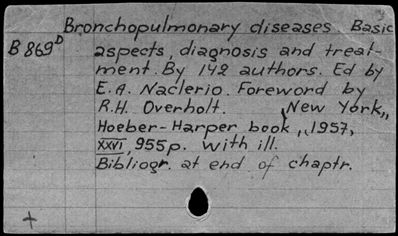 Bronchopulmonary diseases. Basic
B 869ᴰ aspects, diagnosis and treat-
ment. By 142 authors. Ed by
E.A. Naclerio. Foreword by
R.H. Overholt. New York,,
Hoeber-Harper book,,1957,
XXVI, 955p. with ill.
Bibliogr. at end of chaptr.
+